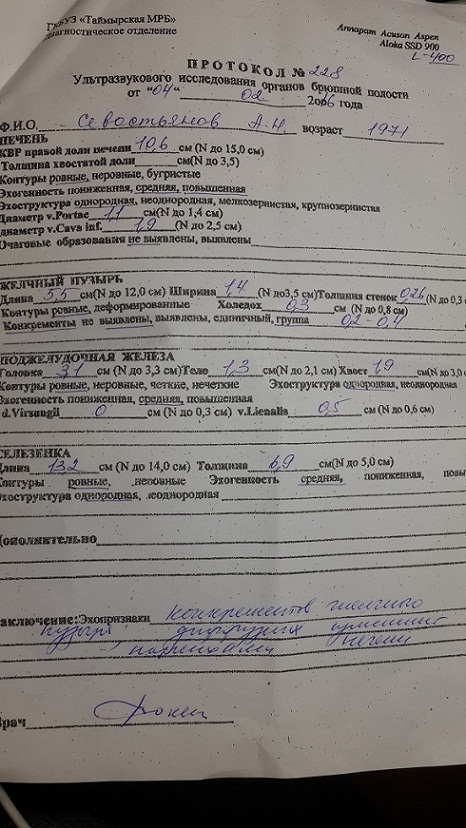 ГБУЗ «Таймырская МРБ»
диагностическое отделение
Аппарат Acuson Aspen
Aloka SSD 900
L-400
ПРОТОКОЛ № 228
Ультразвукового исследования органов брюшной полости
от "04" 02 2016 года
Ф.И.О. Севастьянов А.Н. возраст 1971
ПЕЧЕНЬ
КВР правой доли печени 10,6 см (N до 15,0 см)
Толщина хвостатой доли см(N до 3,5)
Контуры ровные, неровные, бугристые
Эхогенность пониженная, средняя, повышенная
Эхоструктура однородная, неоднородная, мелкозернистая, крупнозернистая
Диаметр v.Portae 1,1 см(N до 1,4 см)
диаметр v.Cava inf. 1,9 (N до 2,5 см)
Очаговые образования не выявлены, выявлены
ЖЕЛЧНЫЙ ПУЗЫРЬ
Длина 5,5 см(N до 12,0 см) Ширина 1,4 (N до3,5 см)Толщина стенок 0,26 (N до 0,3 с
Контуры ровные, деформированные Холедох 0,3 см (N до 0,8 см)
Конкременты не выявлены, выявлены, единичный, группа 0,2-0,4
ПОДЖЕЛУДОЧНАЯ ЖЕЛЕЗА
Головка 3,1 см (N до 3,3 см)Тело 1,3 см(N до 2,1 см) Хвост 1,9 (N до 3,0 с
Контуры ровные, неровные, четкие, нечеткие Эхоструктура однородная, неоднородная
Эхогенность пониженная, средняя, повышенная
d.Virsungii 0 см(N до 0,3 см) v.Lienalis 0,5 см(N до 0,6 см)
СЕЛЕЗЕНКА
Длина 13,2 см (N до 14,0 см) Толщина 6,9 см(N до 5,0 см)
Контуры ровные, неровные Эхогенность средняя, пониженная, повы
Эхоструктура однородная, неоднородная
Дополнительно
Заключение:Эхопризнаки конкрементов желчного
пузыря, диффузных изменений
паренхимы печени
Врач